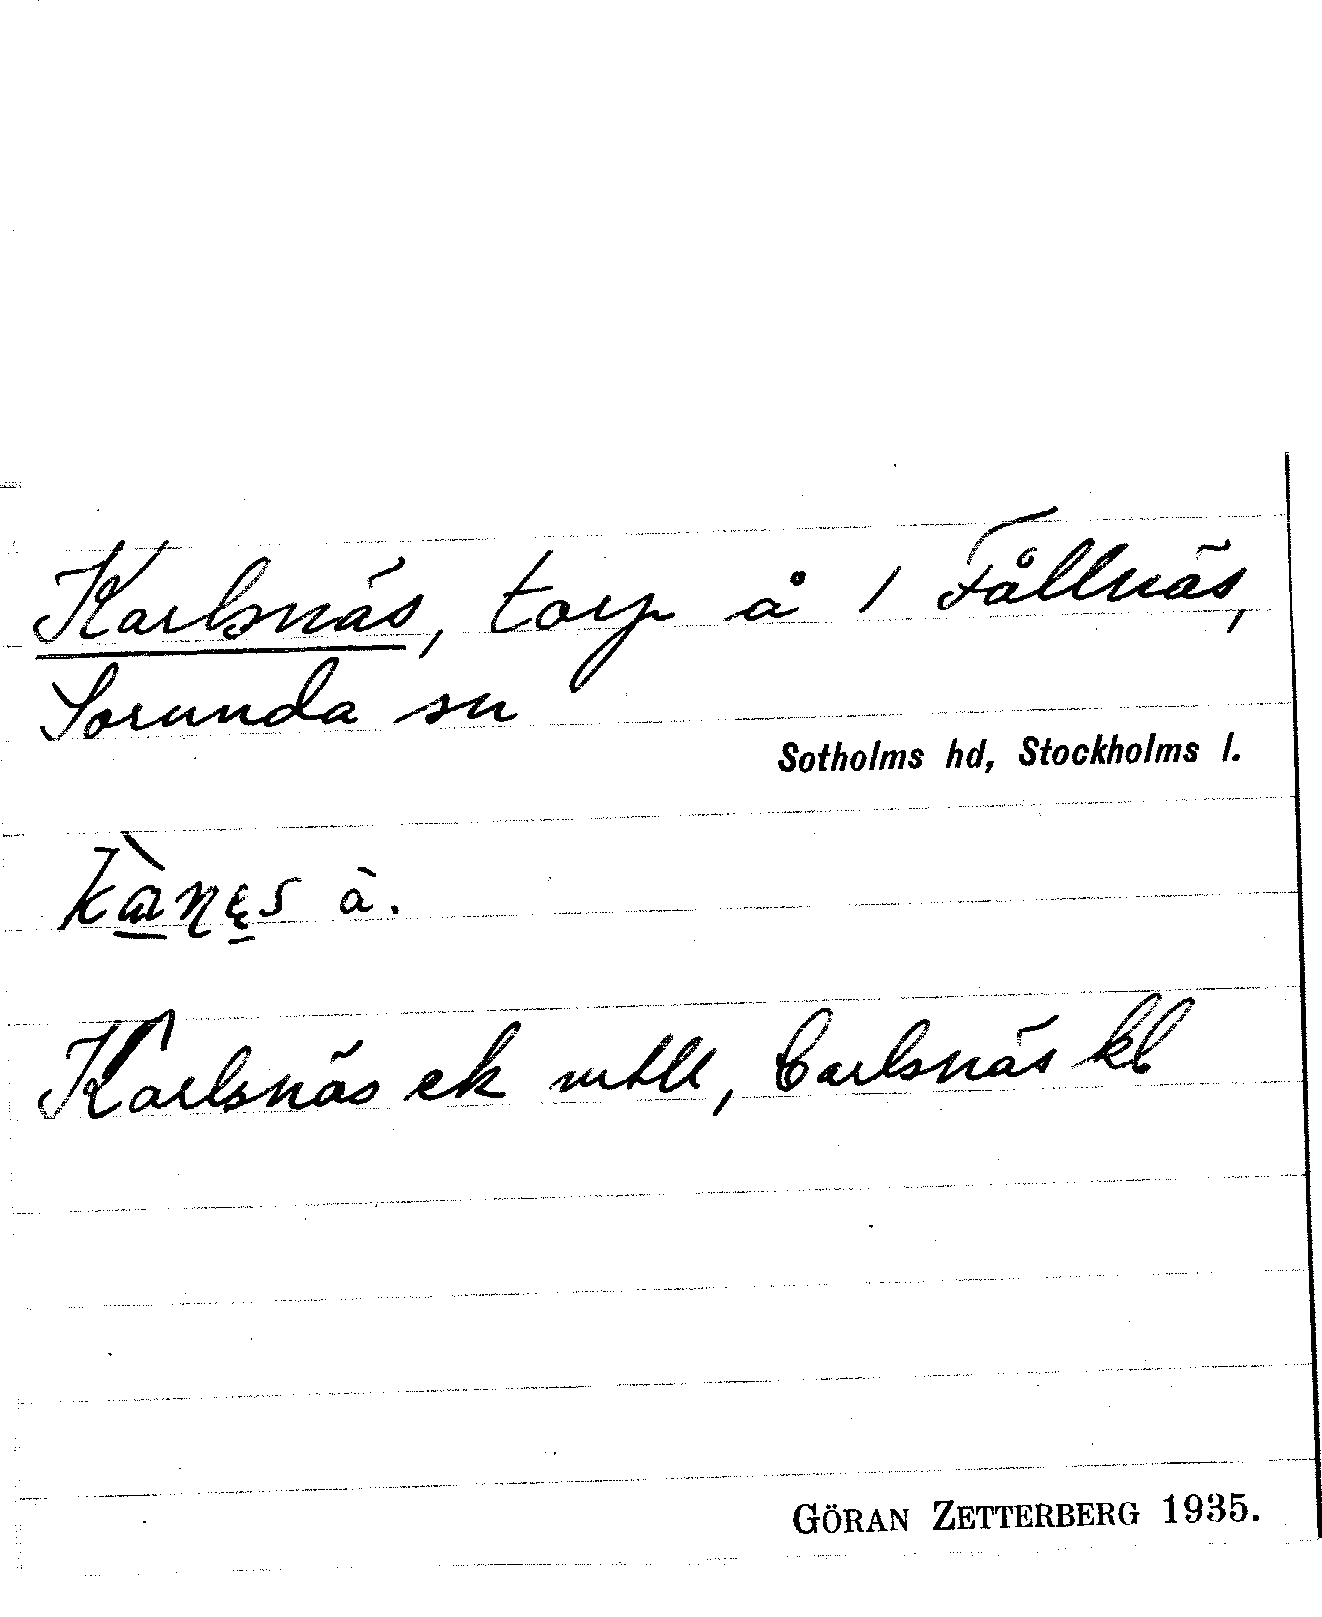 Karlsnäs, torp å 1 Fållnäs,
Sorunda sn
Sotholms hd, Stockholms l.
à.
Karlsnäs ek mtll, Carlsnäs kb
GÖRAN ZETTERBERG 1935.